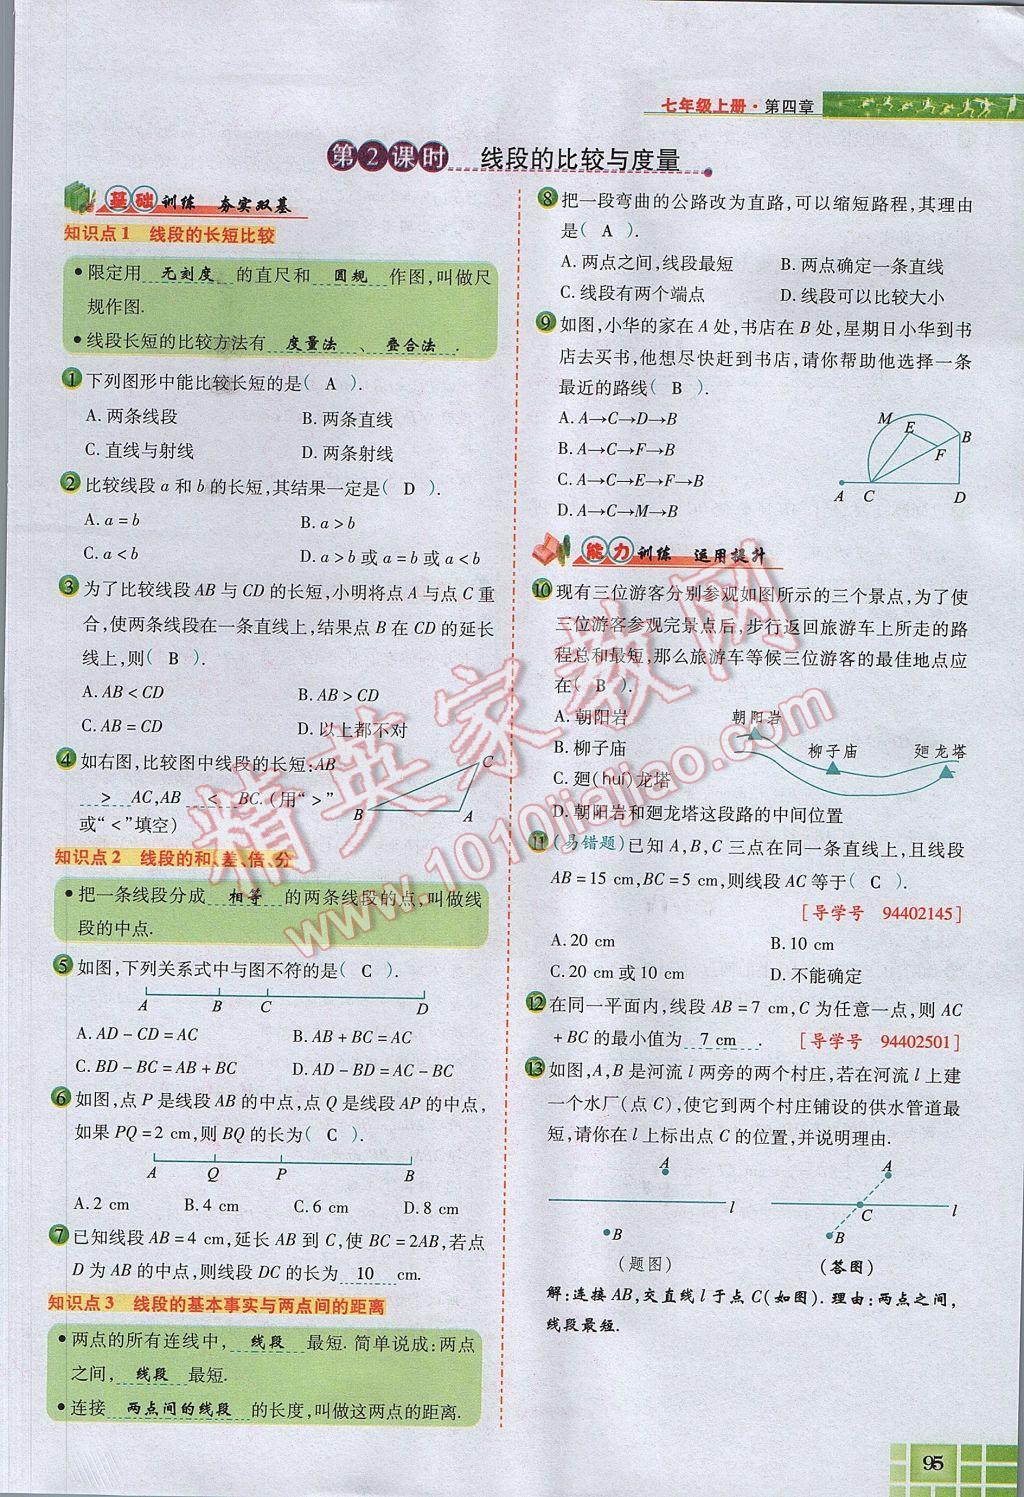 七年级上册·第四章
第2课时 线段的比较与度量
基础训练 夯实双基
知识点1 线段的长短比较
●限定用 无刻度 的直尺和 圆规 作图,叫做尺
规作图.
●线段长短的比较方法有 度量法 、 叠合法 .
1 下列图形中能比较长短的是( A ).
A. 两条线段 B. 两条直线
C. 直线与射线 D. 两条射线
2 比较线段 a 和 b 的长短,其结果一定是( D ).
A. a = b B. a > b
C. a < b D. a > b 或 a = b 或 a < b
3 为了比较线段 AB 与 CD 的长短,小明将点 A 与点 C 重
合,使两条线段在一条直线上,结果点 B 在 CD 的延长
线上,则( B ).
A. AB < CD B. AB > CD
C. AB = CD D. 以上都不对
4 如右图,比较图中线段的长短:AB
> AC,AB < BC.(用“>”
或“<”填空)
C
B A
知识点2 线段的和、差、倍、分
●把一条线段分成 相等 的两条线段的点,叫做线
段的中点.
5 如图,下列关系式中与图不符的是( C ).
A B C D
A. AD - CD = AC B. AB + BC = AC
C. BD - BC = AB + BC D. AD - BD = AC - BC
6 如图,点 P 是线段 AB 的中点,点 Q 是线段 AP 的中点,
如果 PQ = 2 cm,则 BQ 的长为( C ).
A Q P B
A. 2 cm B. 4 cm C. 6 cm D. 8 cm
7 已知线段 AB = 4 cm,延长 AB 到 C,使 BC = 2AB,若点
D 为 AB 的中点,则线段 DC 的长为 10 cm.
知识点3 线段的基本事实与两点间的距离
●两点的所有连线中, 线段 最短. 简单说成:两点
之间, 线段 最短.
●连接 两点间的线段 的长度,叫做这两点的距离.
8 把一段弯曲的公路改为直路,可以缩短路程,其理由
是( A ).
A. 两点之间,线段最短 B. 两点确定一条直线
C. 线段有两个端点 D. 线段可以比较大小
9 如图,小华的家在 A 处,书店在 B 处,星期日小华到书
店去买书,他想尽快赶到书店,请你帮助他选择一条
最近的路线( B ).
A. A→C→D→B
B. A→C→F→B
C. A→C→E→F→B
D. A→C→M→B
M E B
F
A C D
能力训练 运用提升
10 现有三位游客分别参观如图所示的三个景点,为了使
三位游客参观完景点后,步行返回旅游车上所走的路
程总和最短,那么旅游车等候三位游客的最佳地点应
在( B ).
A. 朝阳岩
B. 柳子庙
C. 廻(huí)龙塔
D. 朝阳岩和廻龙塔这段路的中间位置
朝阳岩
柳子庙 廻龙塔
11 (易错题)已知 A,B,C 三点在同一条直线上,且线段
AB = 15 cm,BC = 5 cm,则线段 AC 等于( C ).
[导学号 94402145]
A. 20 cm B. 10 cm
C. 20 cm 或 10 cm D. 不能确定
12 在同一平面内,线段 AB = 7 cm,C 为任意一点,则 AC
+ BC 的最小值为 7 cm . [导学号 94402501]
13 如图,A,B 是河流 l 两旁的两个村庄,若在河流 l 上建
一个水厂(点 C),使它到两个村庄铺设的供水管道最
短,请你在 l 上标出点 C 的位置,并说明理由.
A A
l C l
B B
(题图) (答图)
解:连接 AB,交直线 l 于点 C(如图). 理由:两点之间,
线段最短.
精英家教网
www.1010jiajiao.com
95